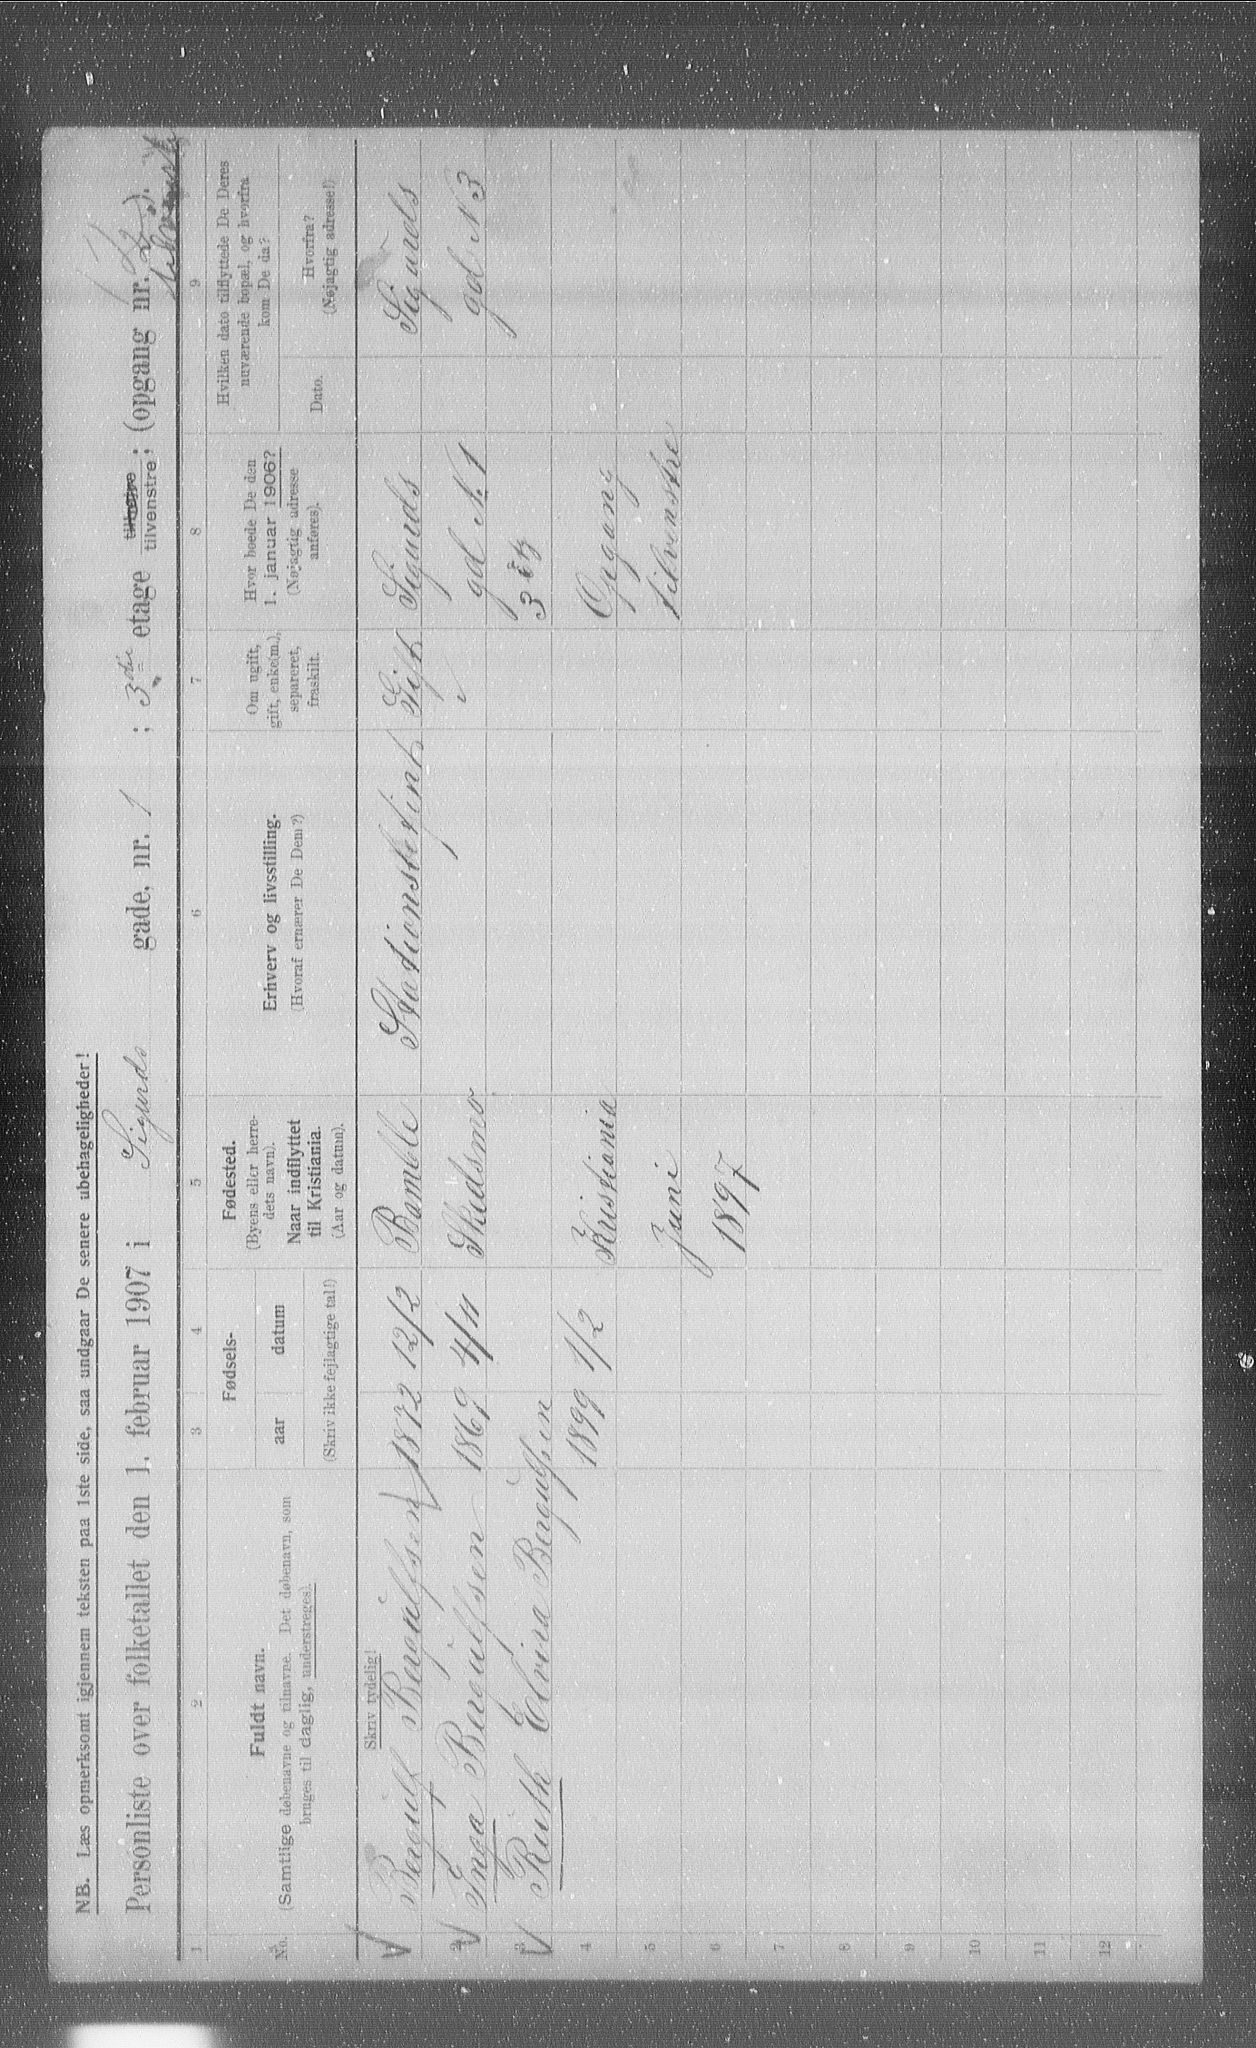 NB. Læs opmerksomt igjennem teksten paa 1ste side, saa undgaar De senere ubehageligheder!
Personliste over folketallet den 1. februar 1907 i Sigurds gade, nr. 1 ; 3die etage tilhøire tilvenstre; (opgang nr. ).
1 2 3 4 5 6 7 8 9
No.
Fuldt navn.
(Samtlige døbenavne og tilnavne. Det døbenavn, som
bruges til daglig, understreges).
Fødsels-
aar datum
(Skriv ikke fejlagtige tal!)
Fødested.
(Byens eller herre-
dets navn).
Naar indflyttet
til Kristiania.
(Aar og datum).
Erhverv og livsstilling.
(Hvoraf ernærer De Dem?)
Om ugift,
gift, enke(m.),
separeret,
fraskilt.
Hvor boede De den
1. januar 1906?
(Nøjagtig adresse
anføres).
Hvilken dato tilflyttede De Deres
nuværende bopæl, og hvorfra
kom De da?
Dato.
Hvorfra?
(Nøjagtig adresse!)
Skriv tydelig!
Bergulf Bergulfsen 1872 12/2 Bamble Stationsbetjent Gift Sigurds Sigurds
2 Inga Bergulfsen 1869 4/11 Skidsmo gd N 1 gd N 3
3 Ruth Elvira Bergulfsen 3 etg
4 1899 1/2 Kristiania Opgang
5 Juni tilvenstre
6 1897
7
8
9
10
11
12